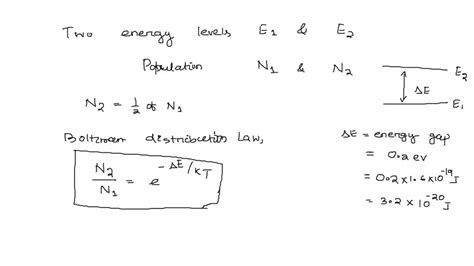 Two energy levels E1 & E2
Population N1 & N2
E2
ΔE
E1
N2 = 1/2 of N1
Boltzman distribution Law,
N2/N1 = e^-ΔE/KT
ΔE = energy gap
= 0.2 ev
= 0.2 x 1.6 x 10^-19 J
= 3.2 x 10^-20 J